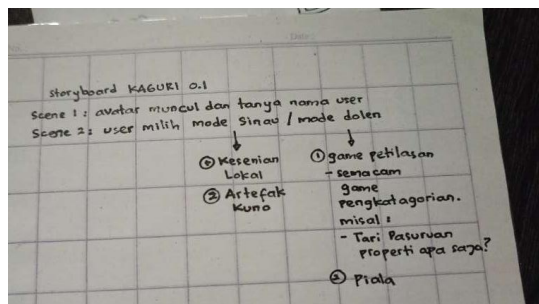 Date:
storyboard KAGURI 0.1
Scene 1 : avatar muncul dan tanya nama user
Scene 2 : user milih mode Sinau / mode dolen
① Kesenian
Lokal
② Artefak
Kuno
① game petilasan
- semacam
game
pengkatagorian.
misal :
- Tari Pasuruan
properti apa saja?
② Piala